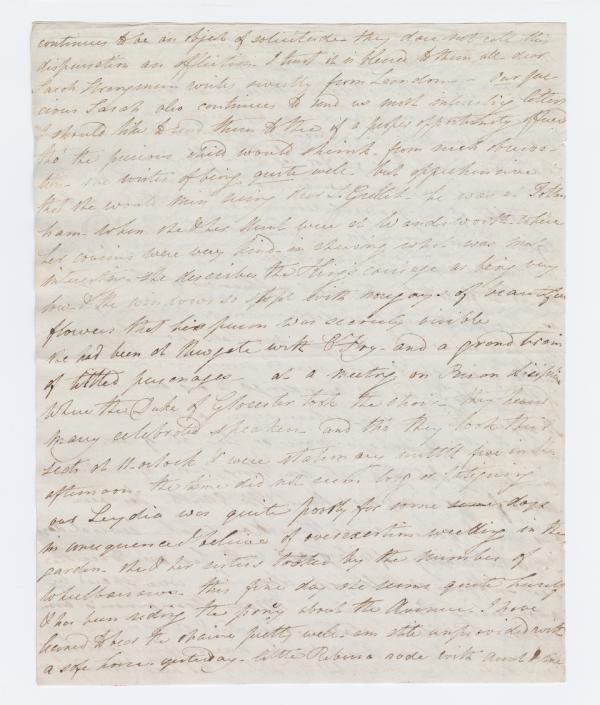 continues to be an object of solicitude they dare not call this
dispensation an affliction. I trust it is blessed to them all dear
Sarah Strangman writes sweetly from London - our pre
cious Sarah also continues to send us most interesting letters
I should like to send them to thee if a proper opportunity offered
tho' the precious child would shrink from such
she writes of being quite well - but apprehensive
that she would miss seeing dear - he was at Totten
ham - when she & her Aunt were at Wandsworth - where
her cousins were very kind - in shewing - was
interesting - she describes the King's carriage as being very
low & the windows so stopt with nosegays of beautiful
flowers that his person was scarcely visible
she had been at Newgate with E Fry - and a grand train
of titled personages - at a meeting on Prison discipline
where the Duke of Glocester took the chair - they heard
many celebrated speakers - and tho they took their
seats at 11 oclock & were stationary until five in the
afternoon the time did not seem long or fatiguing
our Lydia was quite poorly for some days
in consequence I believe of overexertion weeding in the
garden - she & her sisters by the number of
wheelbarrows - this fine day she seems quite lively
& has been riding the pony about the Avenue. I have
learned to bear the chaise pretty well - am still unprovided with
a safe horse - yesterday - little Rebecca rode with Aunt